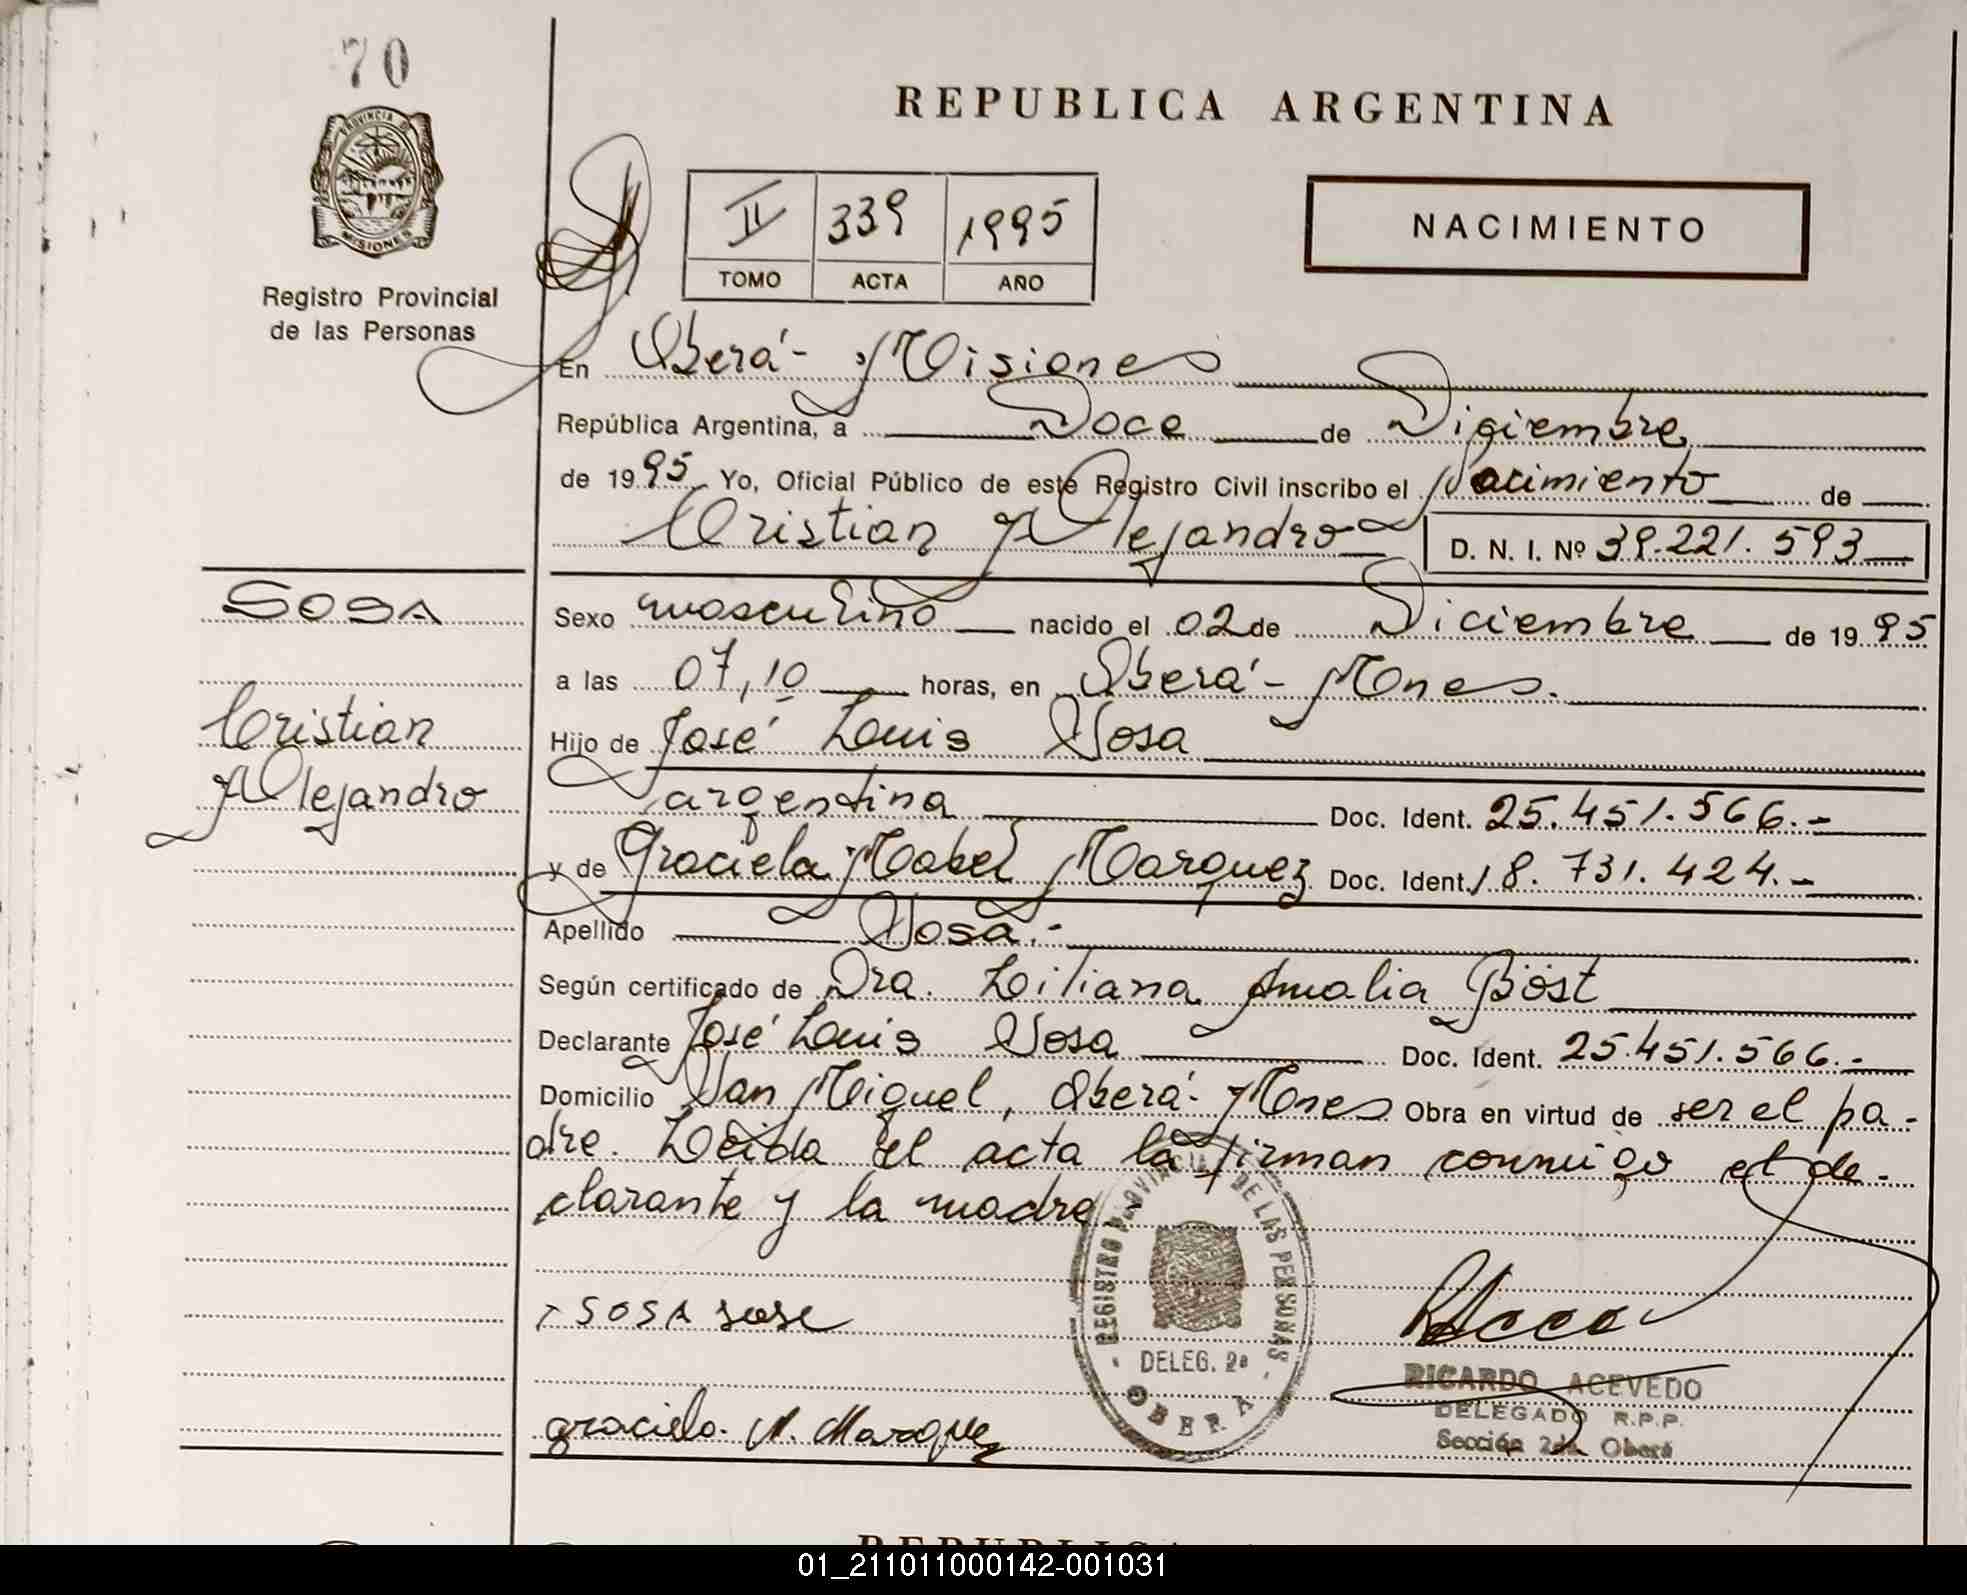 70
PROVINCIA D
MISIONES
Registro Provincial
de las Personas
REPUBLICA ARGENTINA
II 339 1995
TOMO ACTA AÑO
NACIMIENTO
En Oberá - Misiones
República Argentina, a Doce de Diciembre
de 1995 Yo, Oficial Público de este Registro Civil inscribo el Nacimiento de
Cristian Alejandro D. N. I. Nº 39.221.593
SOSA
Sexo masculino nacido el 02 de Diciembre de 1995
a las 07,10 horas, en Oberá - Mnes.
Cristian
Hijo de José Luis Sosa
Alejandro
argentina Doc. Ident. 25.451.566.-
y de Graciela Mabel Marquez Doc. Ident. 18.731.424.-
Apellido Sosa.-
Según certificado de Dra. Liliana Amalia Böst
Declarante José Luis Sosa Doc. Ident. 25.451.566.-
Domicilio San Miguel, Oberá - Mnes Obra en virtud de ser el pa-
dre. Leida el acta la firman conmigo el de-
clarante y la madre
SOSA José
REGISTRO PROVINCIAL DE LAS PERSONAS
DELEG. 2ª
OBERA
RICARDO ACEVEDO
DELEGADO R.P.P.
Sección 2da Oberá
graciela M. Marquez
REPUBLICA
01_211011000142-001031